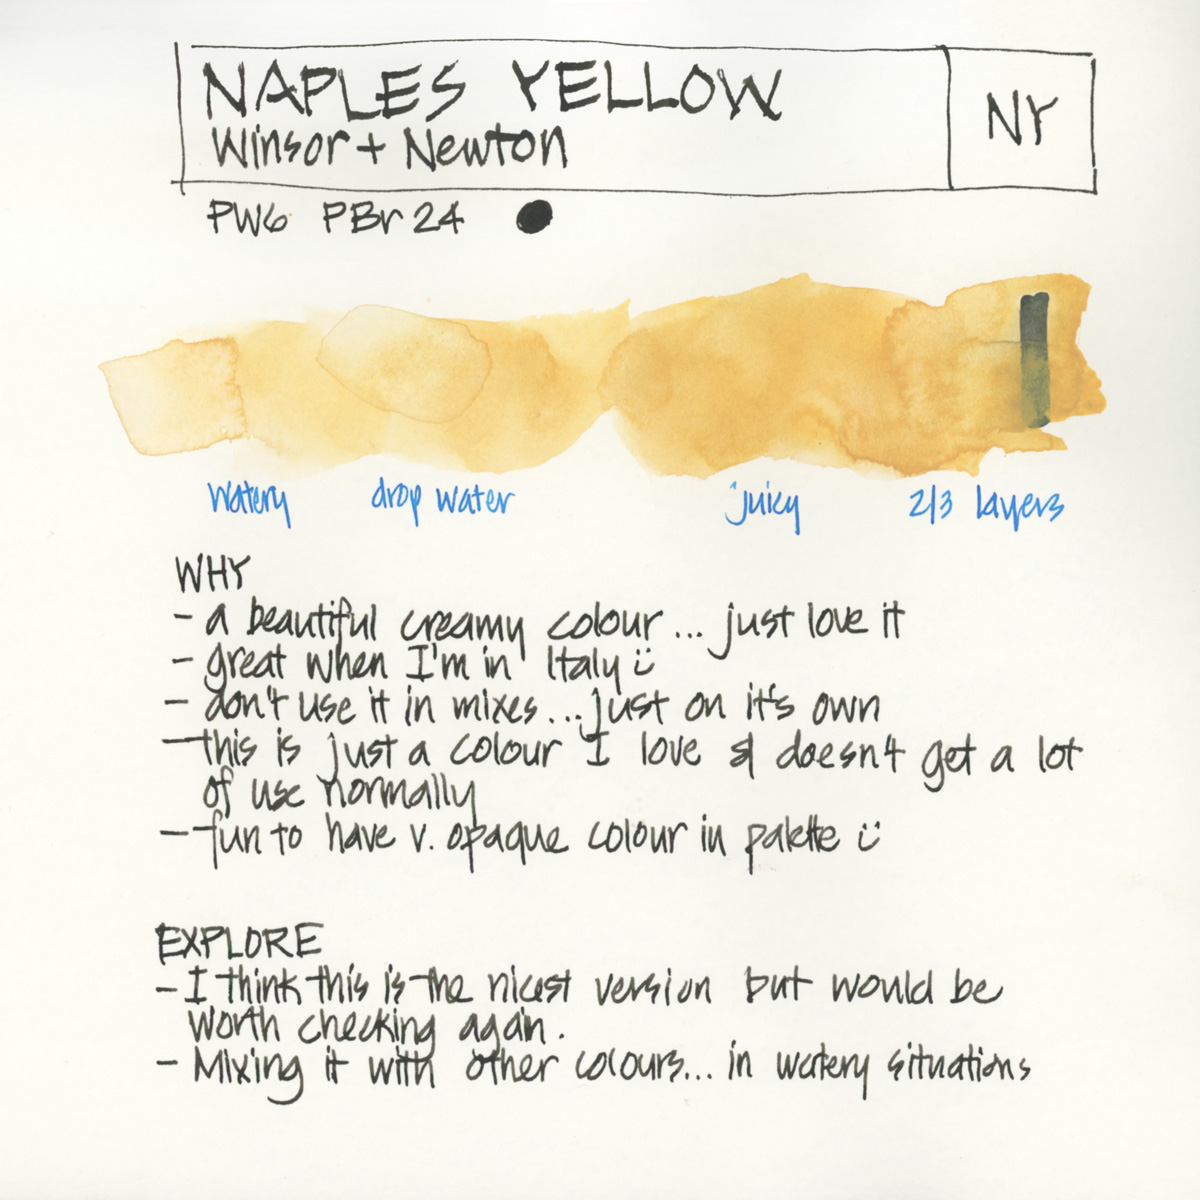 NAPLES YELLOW
NY
Winsor + Newton
PW6 PBr 24
Watery drop water juicy 2/3 layers
WHY
- a beautiful creamy colour... just love it
- great when I'm in Italy ü
- don't use it in mixes... just on it's own
- this is just a colour I love & doesn't get a lot
of use normally
- fun to have v. opaque colour in palette ü
EXPLORE
- I think this is the nicest version but would be
worth checking again.
- Mixing it with other colours... in watery situations